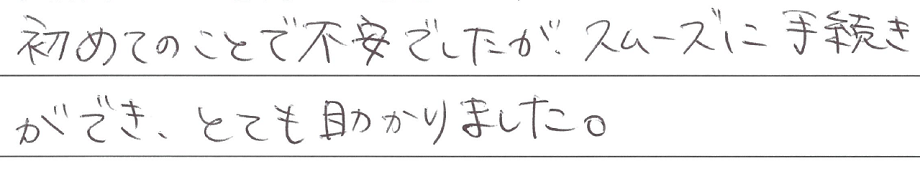 初めてのことで不安でしたが、スムーズに手続き
ができ、とても助かりました。